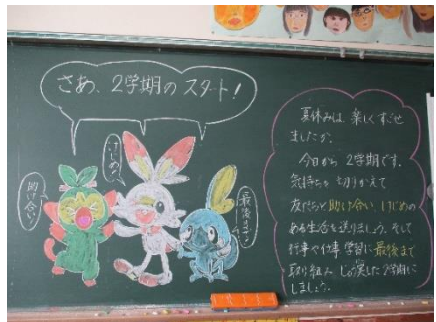 さあ、2学期のスタート!
助け合い!
けじめ!
最後まで
夏休みは楽しくすごせ
ましたか。
今日から2学期です。
気持ちを切りかえて
友だちと助け合い、けじめの
ある生活を送りましょう。そして
行事や仕事、学習に最後まで
取り組み、充実した2学期に
しましょう。